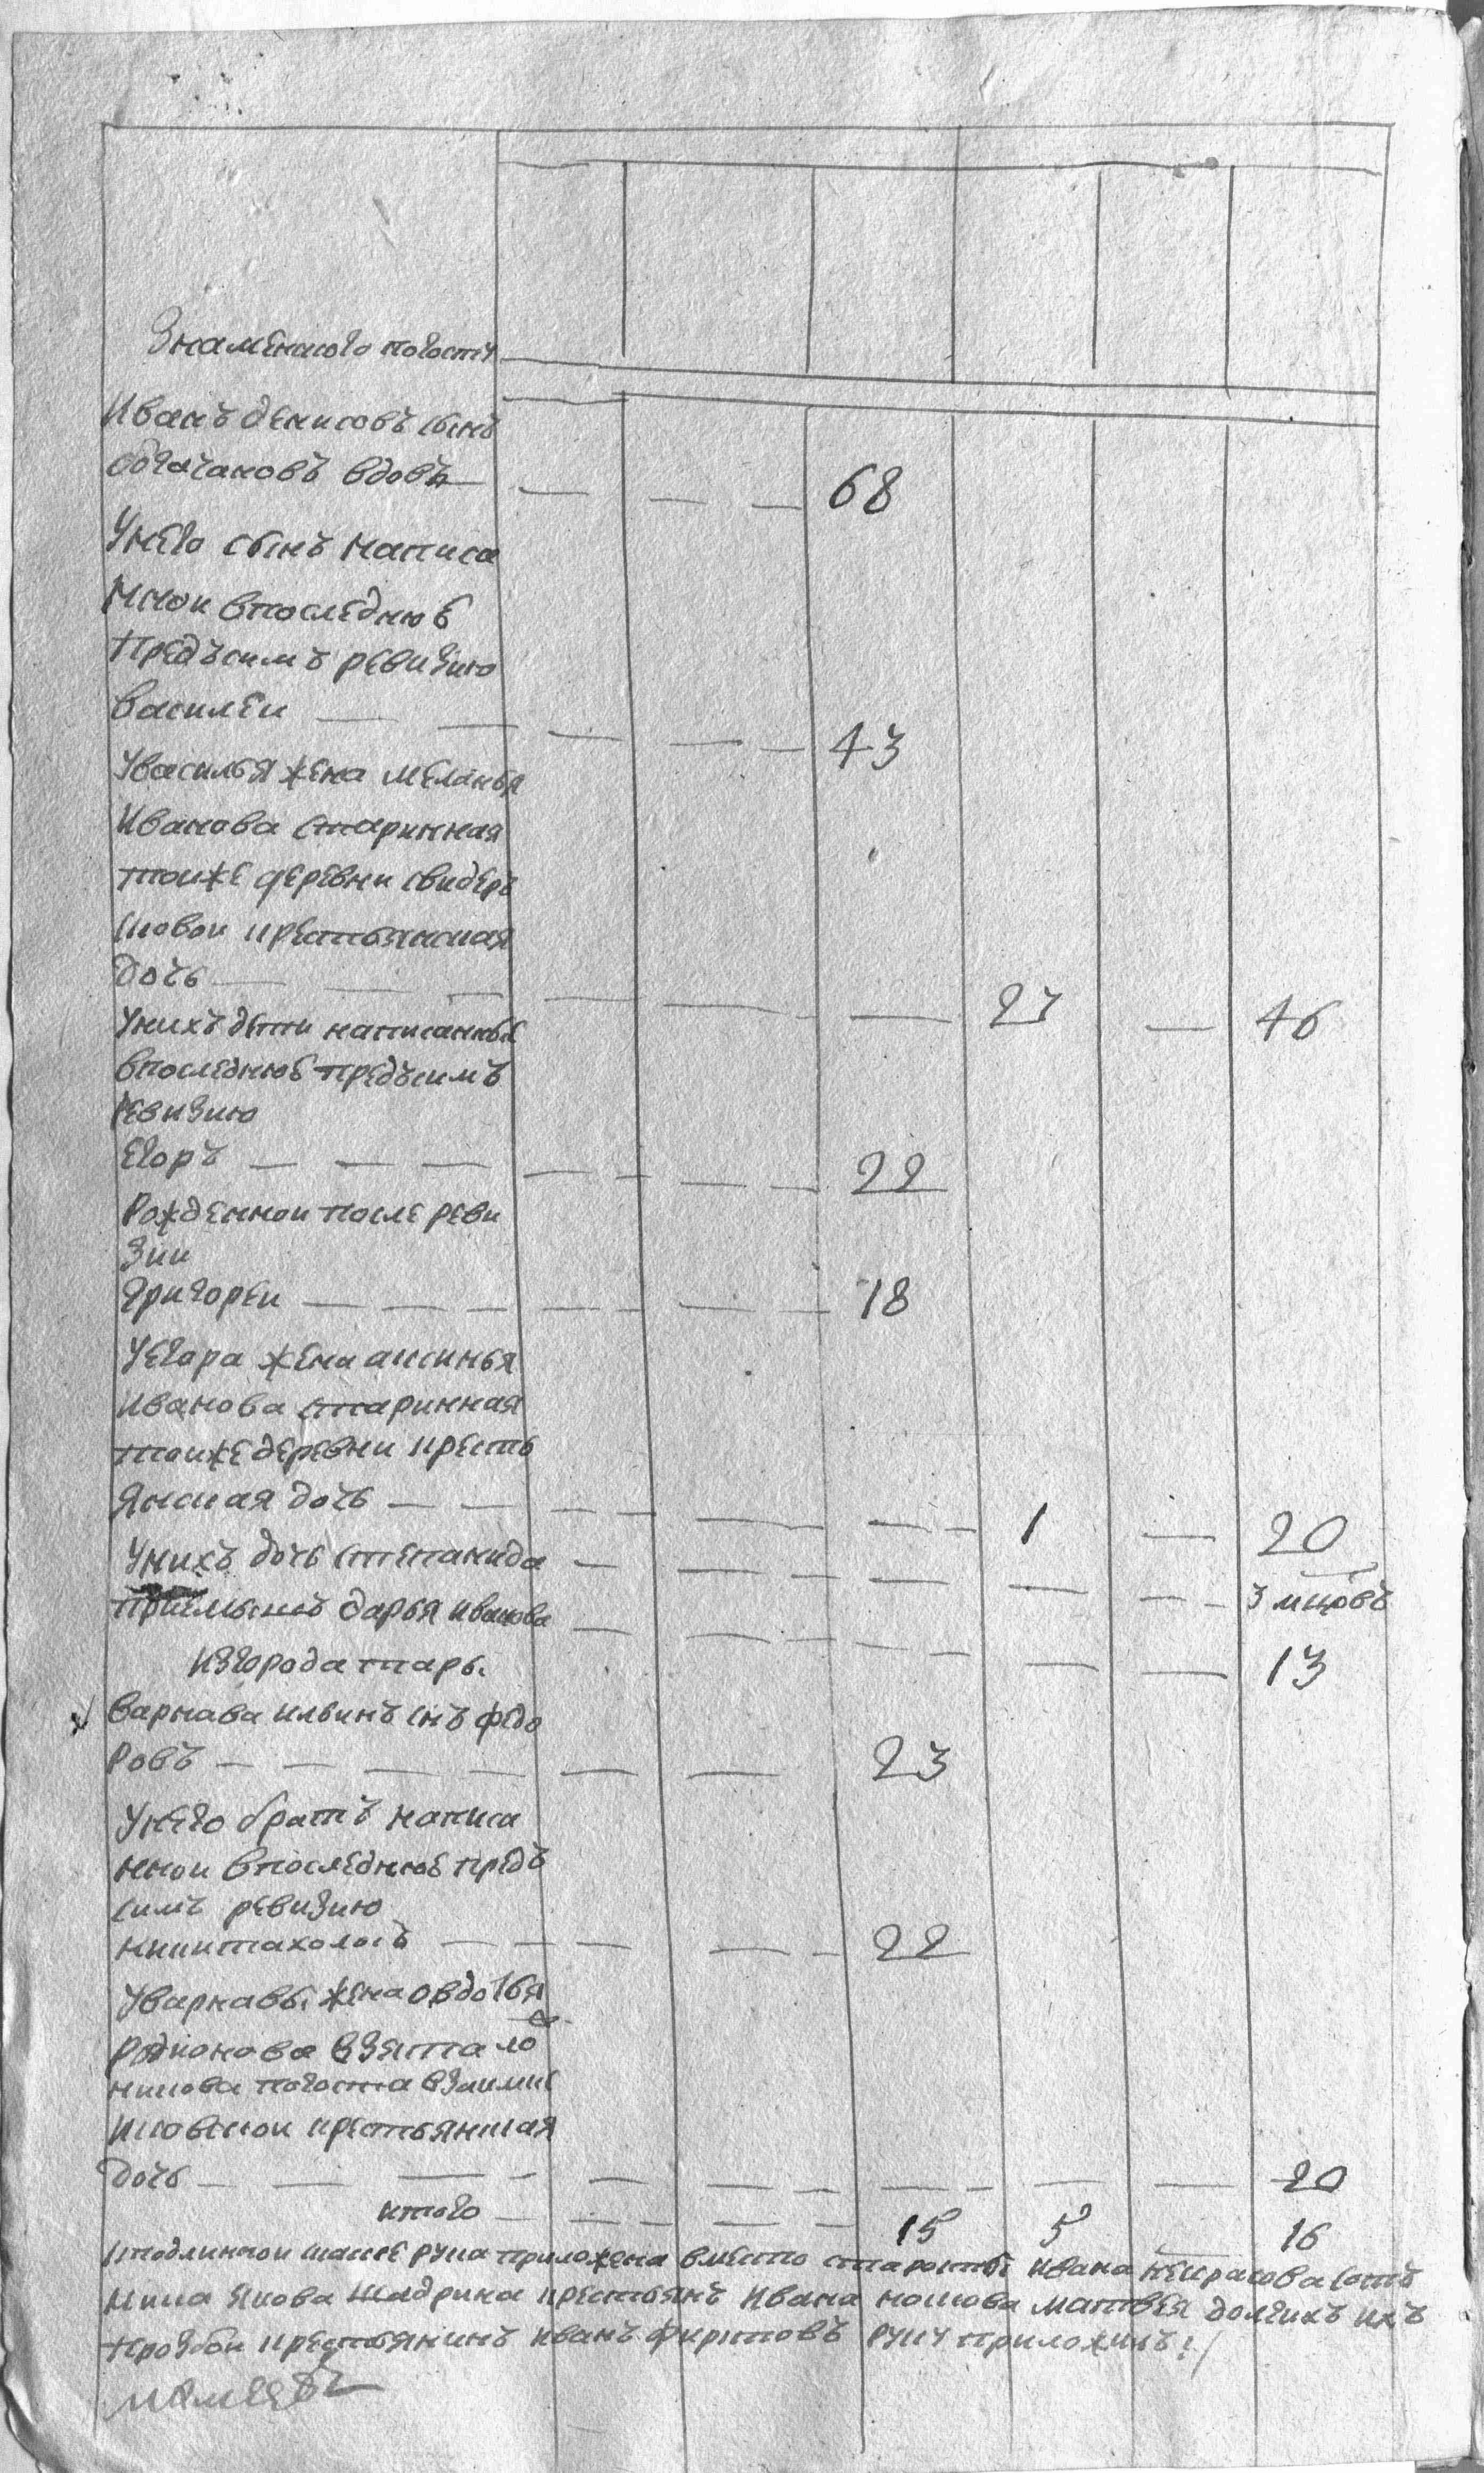 Знаменскова погосту
Иванъ денисовъ сынъ
вдовъ — — — — 68
Унево сынъ написа
нной впоследнюе
предъсимъ ревизию
василей — — — — — 43
Увасилья жена меланья
Иванова старинная
тойже деревни
крестьянская
дочь — — — — — — — 27 — 46
Унихъ дети написанные
впоследнюе предъсимъ
ревизию
Егоръ — — — — — — — 22
Рожденной после реви
зии
Григорей — — — — — — — 18
Уегора жена аксинья
Иванова старинная
тойже деревни кресть
янская дочь — — — — — — — 1 — 20
Унихъ дочь степанида — — — — — — 3 мцовъ
приемышъ дарья иванова — — — — — — — 13
Изгорода тары
варнава ильинъ снъ федо
ровъ — — — — — — 23
Унево братъ написа
нной впоследнюе предъ
симъ ревизию
— — — — — 22
Уварнавы жена овдотья
родионова взята ло
погоста
крестьянская
дочь — — — — — — — — — — 20
итого — — — — — — 15 5 — 16
Кподлинной скаске рука приложена вместо старосты Ивана некрасова
Якова шадрина крестьянъ Ивана матвея долгихъ ихъ
прозбой крестьянинъ иванъ фирсовъ руку приложилъ